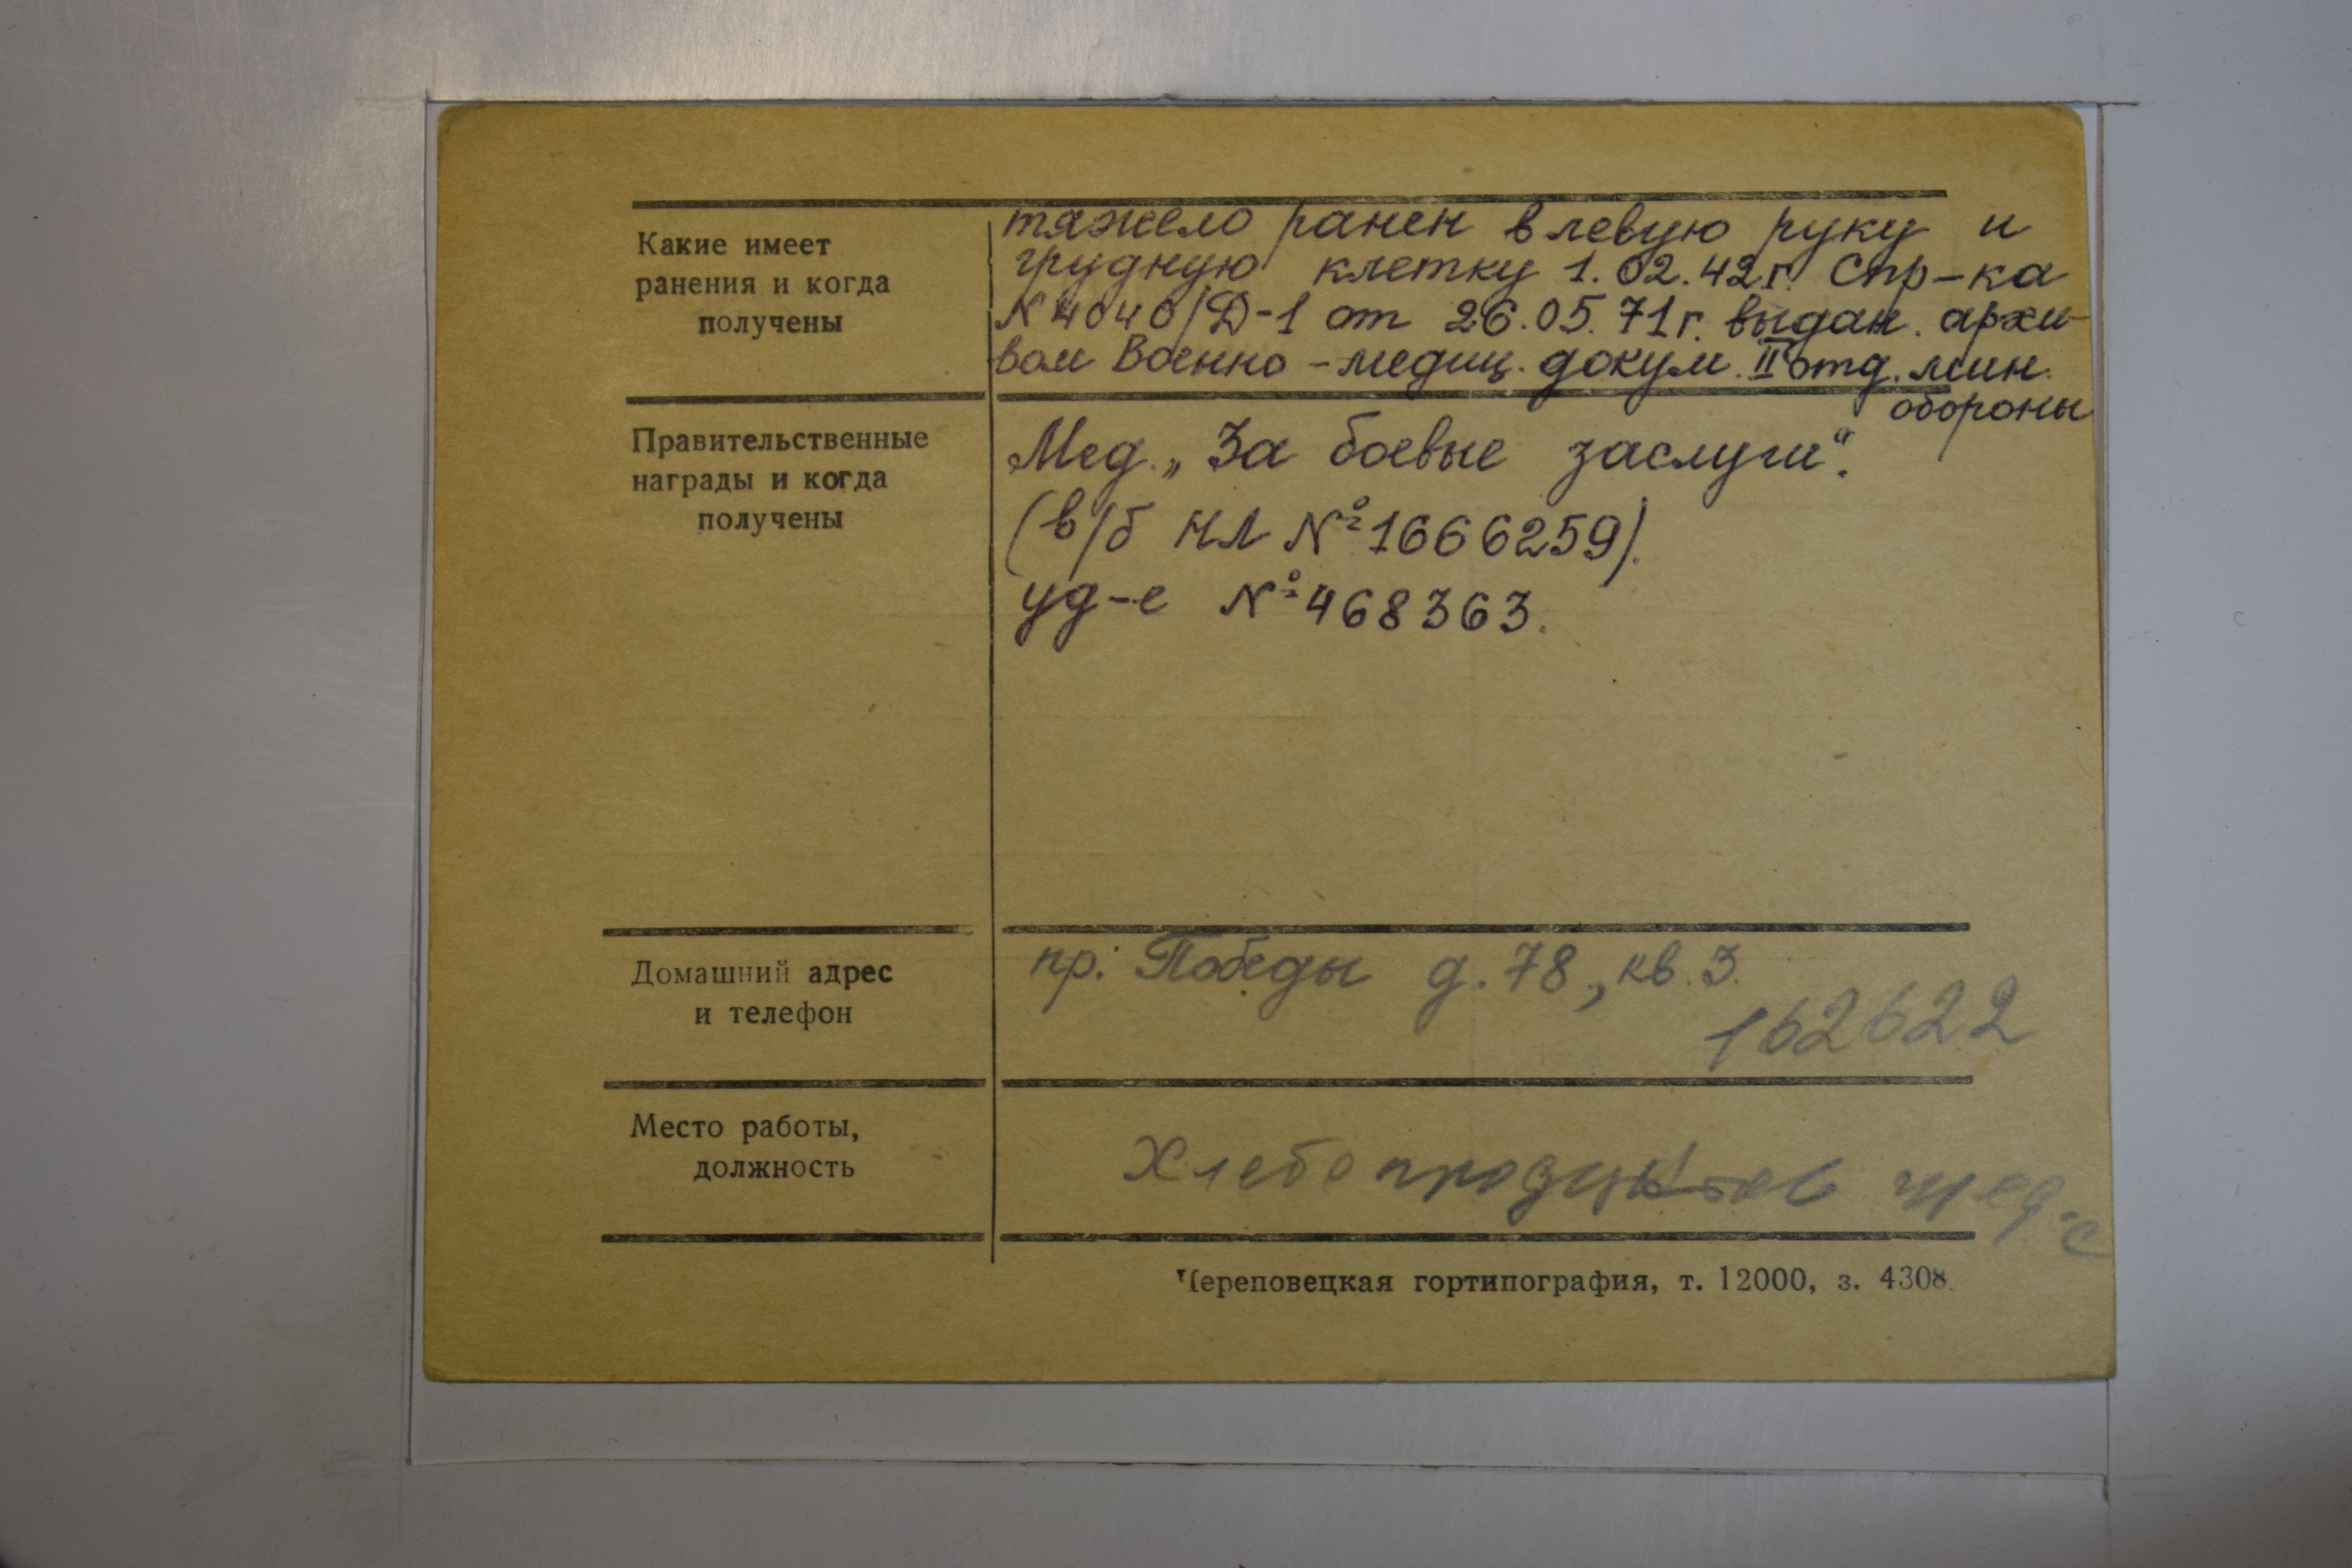 Какие имеет
ранения и когда
получены
тяжело ранен в левую руку и
грудную клетку 1.02.42г. Спр-ка
N 4040/Д-1 от 26.05.71г. выдан. архи-
вом Военно-медиц. докум. II отд. мин.
обороны
Правительственные
награды и когда
получены
Мед. „За боевые заслуги".
(в/б НЛ №1666259).
уд-е №468363.
Домашний адрес
и телефон
пр. Победы д.78, кв.3.
162622
Место работы,
должность
Хлебопродуктов
Череповецкая гортипография, т. 12000, з. 4308.